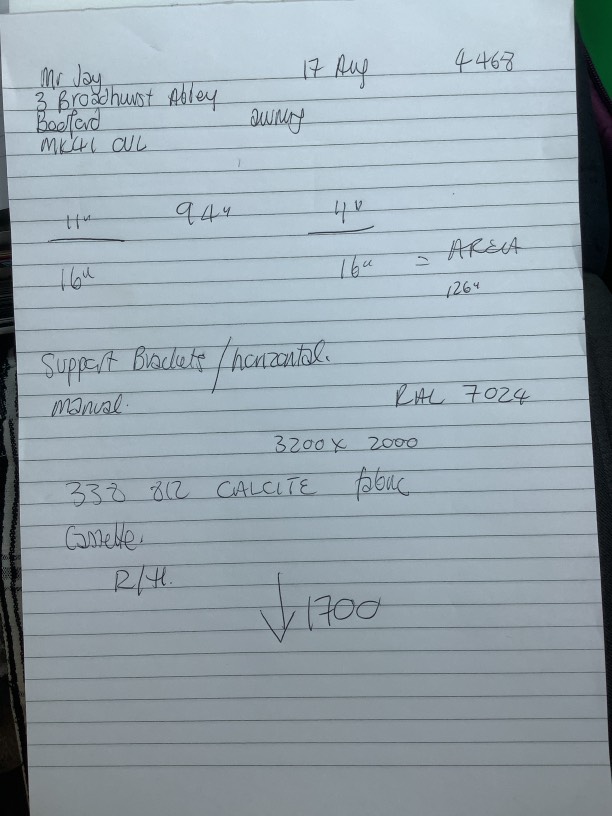 Mr Jay 17 Aug 4468
3 Broadhurst Abbey
Bedford awning
MK41 0UL
11" 94" 4"
16" 16" = AREA
126"
Support Brackets / horizontal.
Manual. RAL 7024
3200 x 2000
338 812 CALCITE fabric
Cassette.
R/H.
↓ 1700